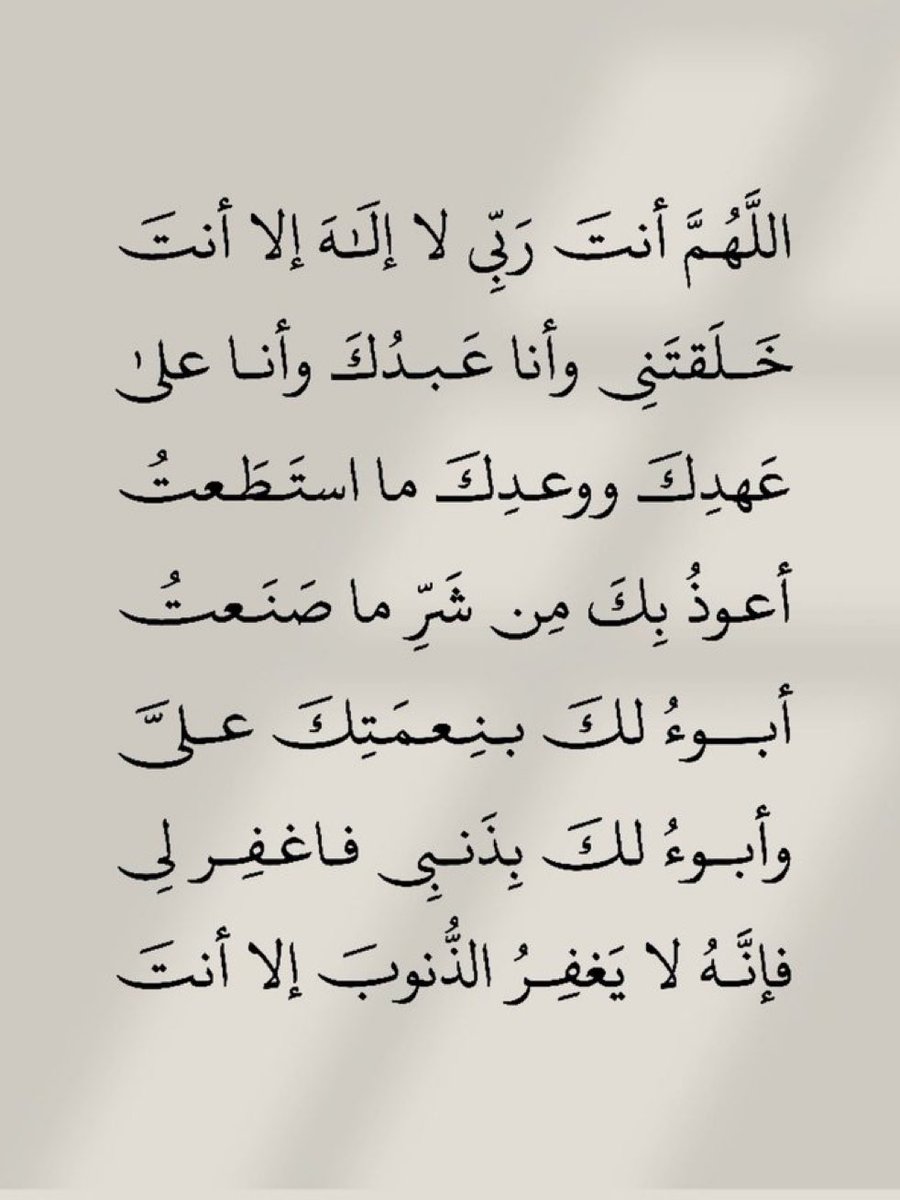 اللَّهُمَّ أنتَ رَبِّي لا إلَٰهَ إلا أنتَ
خَلَقتَنِي وأنا عَبدُكَ وأنا علىٰ
عَهدِكَ ووعدِكَ ما استَطَعتُ
أعوذُ بِكَ مِن شَرِّ ما صَنَعتُ
أبوءُ لكَ بنِعمَتِكَ عليَّ
وأبوءُ لكَ بِذَنبِي فاغفِر لِي
فإنَّهُ لا يَغفِرُ الذُّنوبَ إلا أنتَ